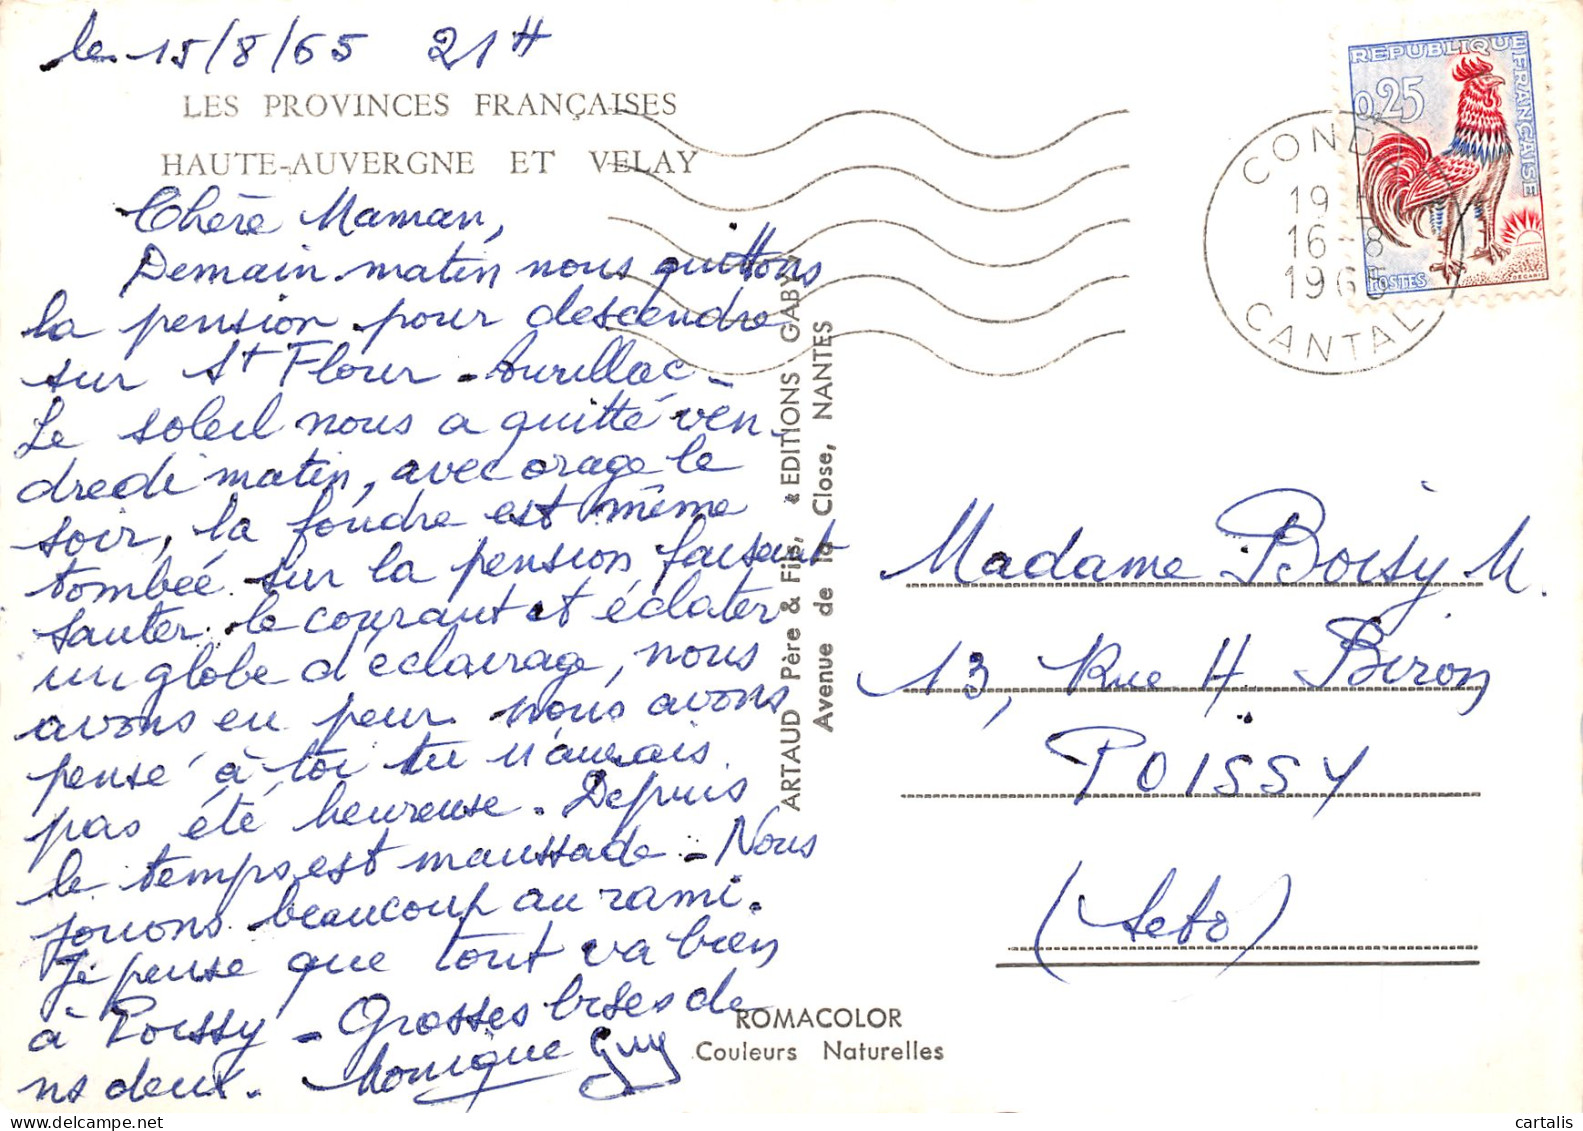 le 15/8/65 21H
LES PROVINCES FRANÇAISES
HAUTE-AUVERGNE ET VELAY
Chère Maman,
Demain matin nous quittons
la pension pour descendre
sur St Flour - Aurillac -
Le soleil nous a quitté ven-
dredi matin, avec orage le
soir, la foudre est même
tombée sur la pension faisant
sauter le courant et éclater
un globe d'éclairage, nous
avons eu peur nous avons
pensé à toi tu n'aurais
pas été heureuse. Depuis
le temps est maussade - Nous
jouons beaucoup au rami.
Je pense que tout va bien
à Poissy - Grosses bises de
ns deux. Monique Guy
ARTAUD Père & Fils, « EDITIONS GABY »
Avenue de la Close, NANTES
REPUBLIQUE FRANÇAISE
0,25
POSTES
DECARIS
COND
19 H
16-8
1965
CANTAL
Madame Boisy M.
13, Rue H Biron
POISSY
(Seto)
ROMACOLOR
Couleurs Naturelles
cartalis